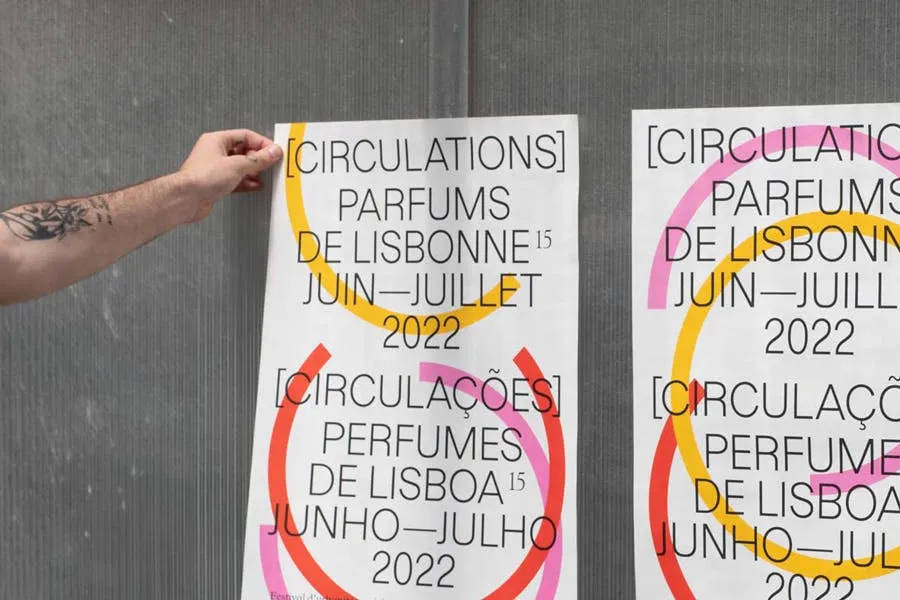 [CIRCULATIONS]
PARFUMS
DE LISBONNE 15
JUIN—JUILLET
2022
[CIRCULAÇÕES]
PERFUMES
DE LISBOA 15
JUNHO—JULHO
2022
[CIRCULATIO
PARFUMS
DE LISBONN
JUIN—JUILL
2022
[CIRCULAÇÕ
PERFUME
DE LISBOA
JUNHO—JUL
2022